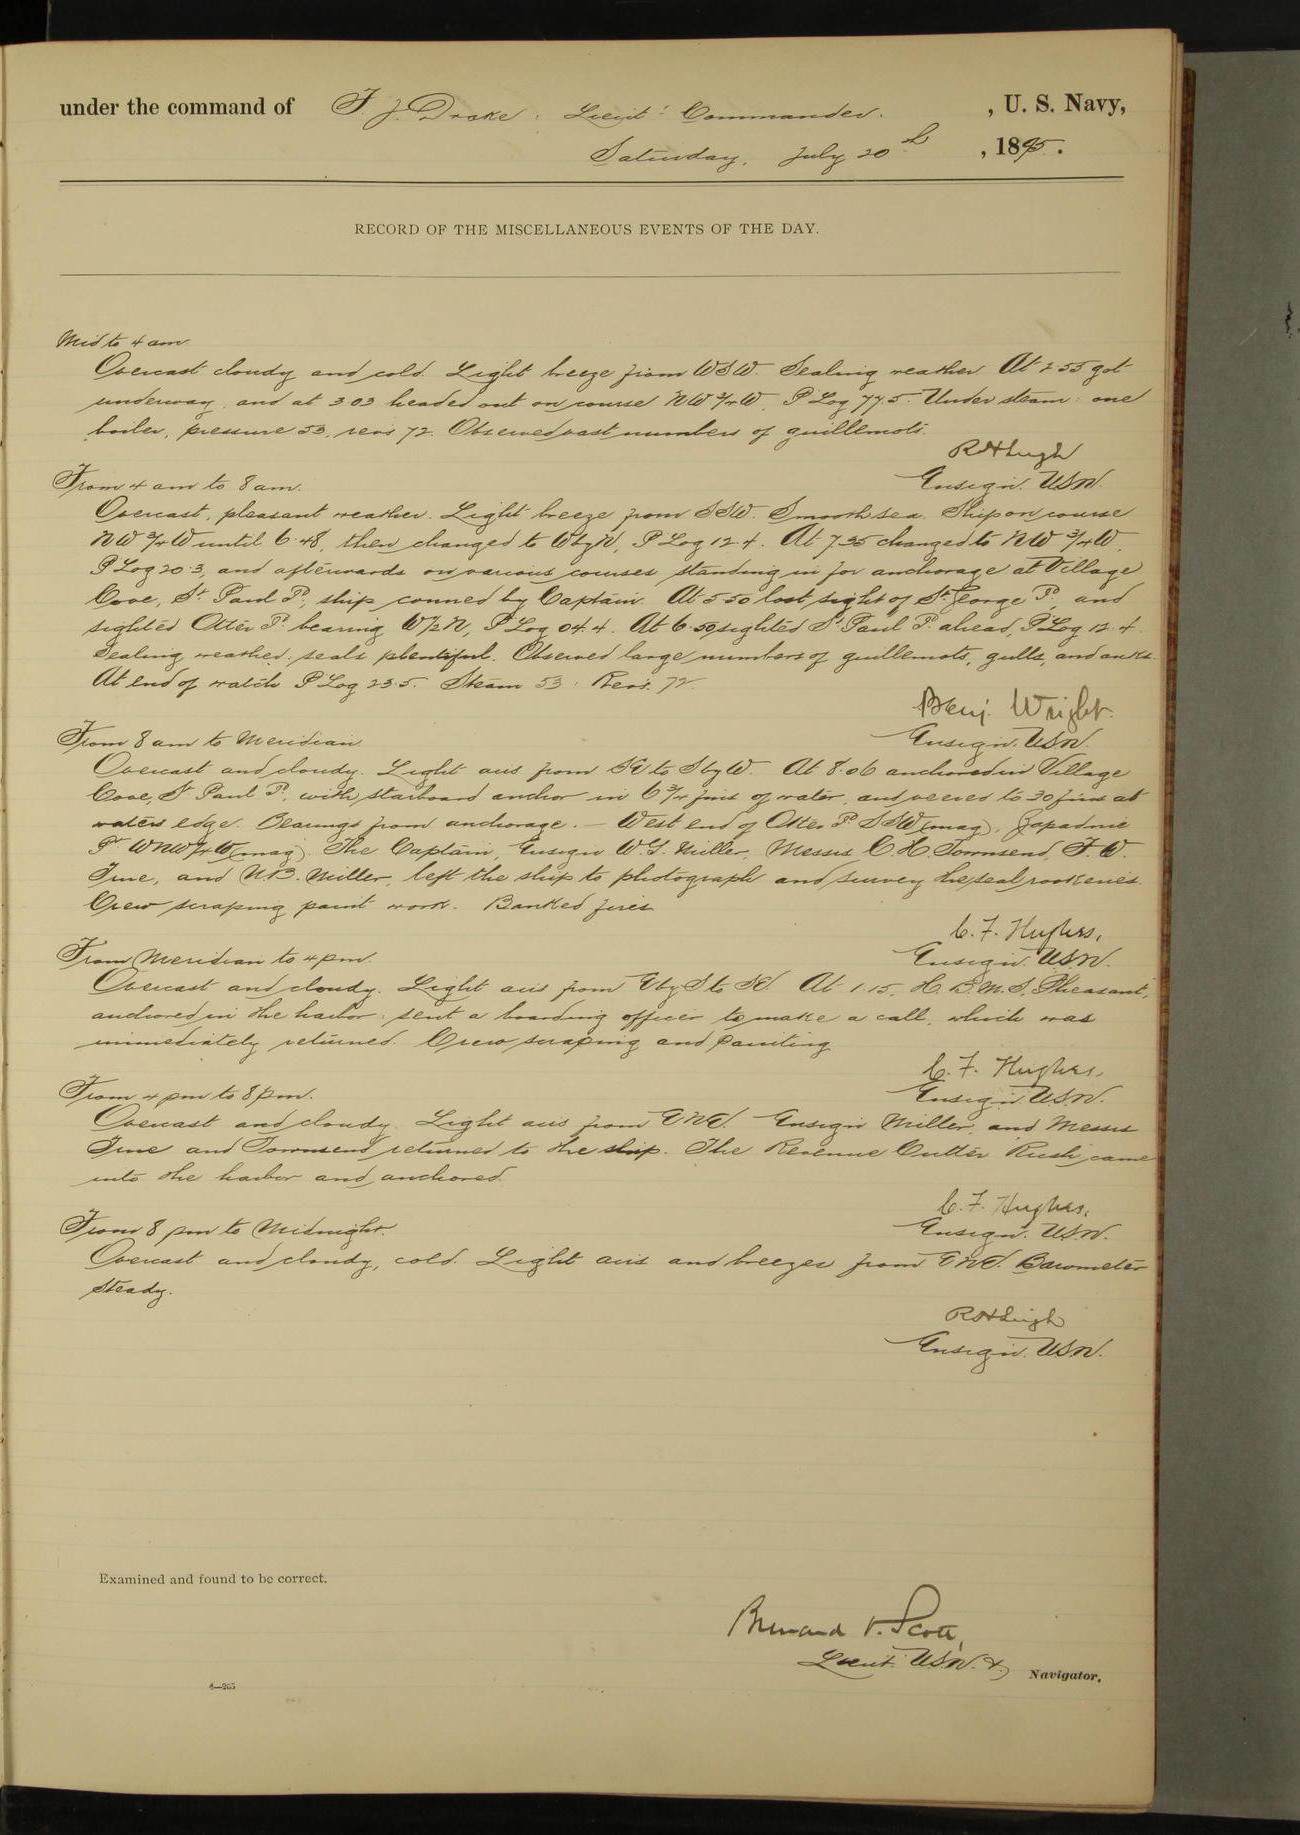 under the command of F. J. Drake, Lieut. Commander, U. S. Navy,
Saturday, July 20th, 1895.
RECORD OF THE MISCELLANEOUS EVENTS OF THE DAY.
Mid to 4 am
Overcast cloudy and cold. Light breeze from WSW. Sealing weather. At 2.55 got
underway, and at 3.03 headed out on course NW 3/4 W, P Log 77.5. Under steam: one
boiler, pressure 53, revs 72. Observed vast numbers of guillemots.
RH Leigh
Ensign. USN.
From 4 am to 8 am.
Overcast, pleasant weather. Light breeze from SSW. Smooth sea. Ship on course
NW 3/4 W until 6.48, then changed to W by N, P Log 12.4. At 7.35 changed to NW 3/4 W,
P Log 20.3, and afterwards on various courses standing in for anchorage at Village
Cove, St. Paul Id., ship conned by Captain. At 5.50 lost sight of St. George Id., and
sighted Otter Id. bearing W 1/2 N, P Log 04.4. At 6.50 sighted St. Paul Id. ahead, P Log 12.4.
Sealing weather: seals plentiful. Observed large numbers of guillemots, gulls, and auks.
At end of watch P Log 23.5. Steam 53: Revs. 72.
Benj. Wright.
Ensign. USN.
From 8 am to Meridian
Overcast and cloudy. Light airs from SE to S by W. At 8.06 anchored in Village
Cove, St. Paul Id., with starboard anchor in 6 3/4 fms of water, and veered to 30 fms at
waters edge. Bearings from anchorage. — West end of Otter Id SSW (mag), Zapadnie
Pt. WNW 1/4 W (mag). The Captain, Ensign W.G. Miller, Messrs C. H. Townsend, F. W.
True, and N.B. Miller, left the ship to photograph and survey the seal rookeries.
Crew scraping paint work. Banked fires.
C. F. Hughes,
Ensign. USN.
From Meridian to 4 pm.
Overcast and cloudy. Light airs from E by S to SE. At 1.15, H.B.M.S. Pheasant,
anchored in the harbor: sent a boarding officer to make a call, which was
immediately returned. Crew scraping and painting
C. F. Hughes,
Ensign USN.
From 4 pm to 8 pm.
Overcast and cloudy. Light airs from ENE. Ensign Miller, and Messrs
True and Townsend returned to the ship. The Revenue Cutter Rush came
into the harbor and anchored.
C. F. Hughes,
Ensign. USN.
From 8 pm to Midnight.
Overcast and cloudy, cold. Light airs and breezes from ENE. Barometer
steady.
RH Leigh
Ensign. USN.
Examined and found to be correct.
Bernard O. Scott,
Lieut. USN. & Navigator.